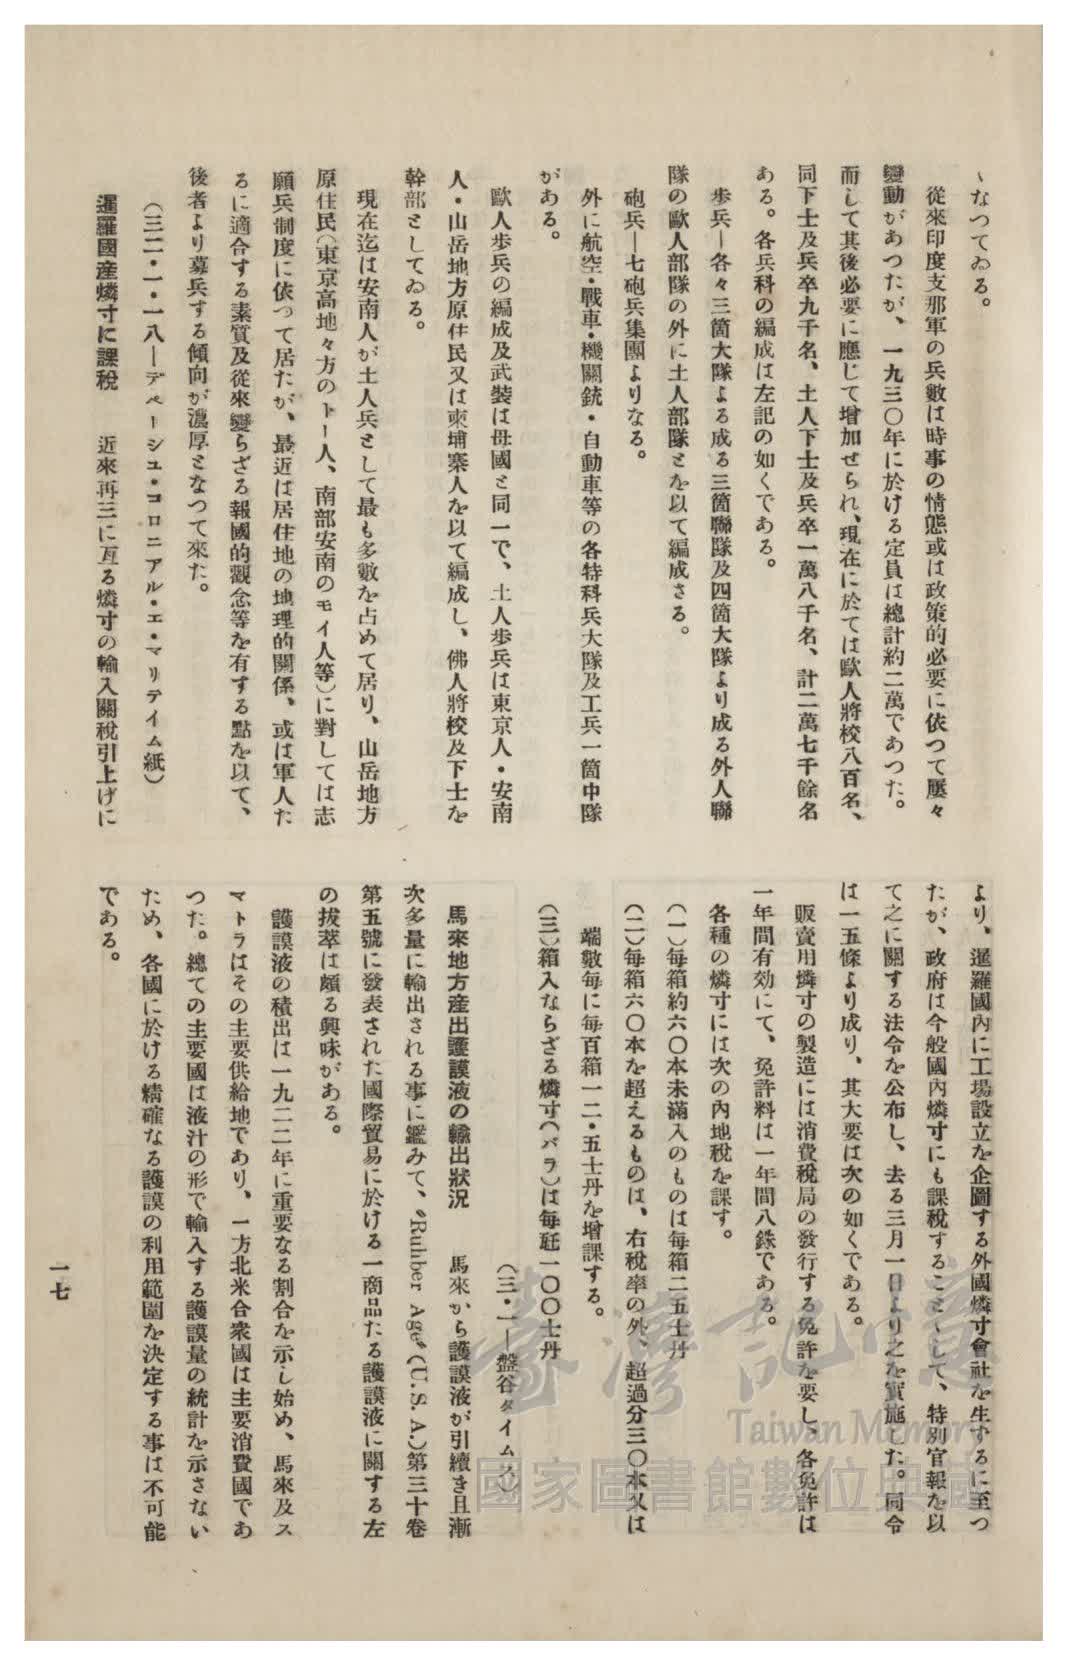 ゝなつてゐる。
從來印度支那軍の兵數は時事の情態或は政策的必要に依つて屢々
變動があつたが、一九三〇年に於ける定員は總計約二萬であつた。
而して其後必要に應じて增加せられ、現在に於ては歐人將校八百名、
同下士及兵卒九千名、土人下士及兵卒一萬八千名、計二萬七千餘名
ある。各兵科の編成は左記の如くである。
步兵―各々三箇大隊よる成る三箇聯隊及四箇大隊より成る外人聯
隊の歐人部隊の外に土人部隊とを以て編成さる。
砲兵―七砲兵集團よりなる。
外に航空・戰車・機關銃・自動車等の各特科兵大隊及工兵一箇中隊
がある。
歐人步兵の編成及武裝は母國と同一で、土人步兵は東京人・安南
人・山岳地方原住民又は柬埔寨人を以て編成し、佛人將校及下士を
幹部としてゐる。
現在迄は安南人が土人兵として最も多數を占めて居り、山岳地方
原住民(東京高地々方のトー人、南部安南のモイ人等)に對しては志
願兵制度に依つて居たが、最近は居住地の地理的關係、或は軍人た
るに適合する素質及從來變らざる報國的觀念等を有する點を以て、
後者より募兵する傾向が濃厚となつて來た。
(三二・一・一八―デペーシュ・コロニアル・エ・マリテイム紙)
暹羅國産燐寸に課稅　近來再三に亙る燐寸の輸入關稅引上げに
より、暹羅國內に工場設立を企圖する外國燐寸會社を生ずるに至つ
たが、政府は今般國內燐寸にも課稅することゝして、特別官報を以
て之に關する法令を公布し、去る三月一日より之を實施した。同令
は一五條より成り、其大要は次の如くである。
販賣用燐寸の製造には消費稅局の發行する免許を要し、各免許は
一年間有効にて、免許料は一年間八銖である。
各種の燐寸には次の內地稅を課す。
(一)每箱約六〇本未滿入のものは每箱二五士丹
(二)每箱六〇本を超えるものは、右稅率の外、超過分三〇本又は
端數每に每百箱一二・五士丹を增課する。
(三)箱入ならざる燐寸(バラ)は每瓩一〇〇士丹
(三・一―盤谷タイムス)
馬來地方産出護謨液の輸出狀況　馬來から護謨液が引續き且漸
次多量に輸出される事に鑑みて、“Ruhber Age”(U.S.A.)第三十卷
第五號に發表された國際貿易に於ける一商品たる護謨液に關する左
の拔萃は頗る興味がある。
護謨液の積出は一九二二年に重要なる割合を示し始め、馬來及ス
マトラはその主要供給地であり、一方北米合衆國は主要消費國であ
つた。總ての主要國は液汁の形で輸入する護謨量の統計を示さない
ため、各國に於ける精確なる護謨の利用範圍を決定する事は不可能
である。
一七
臺灣記憶
Taiwan Memory
國家圖書館數位典藏